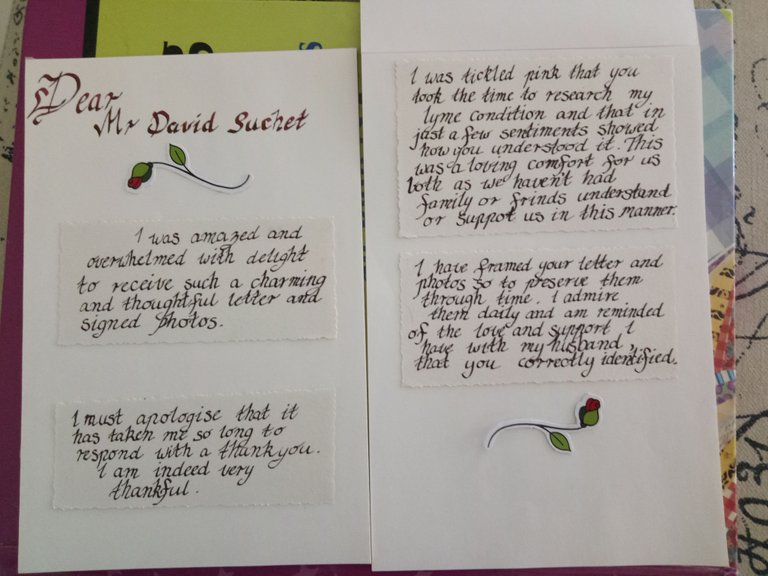 Dear
Mr David Suchet
I was amazed and
overwhelmed with delight
to receive such a charming
and thoughtful letter and
signed photos.
I must apologise that it
has taken me so long to
respond with a thank you.
I am indeed very
thankful.
I was tickled pink that you
took the time to research my
lyme condition and that in
just a few sentiments showed
how you understood it. This
was a loving comfort for us
both as we haven't had
family or frinds understand
or suppot us in this manner.
I have framed your letter and
photos so to preserve them
through time. I admire
them daily and am reminded
of the love and support I
have with my husband,
that you correctly identified.